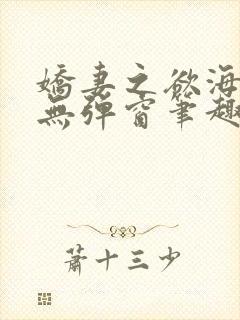 嬌妻之慾海
無彈窗筆趣
蕭十三少